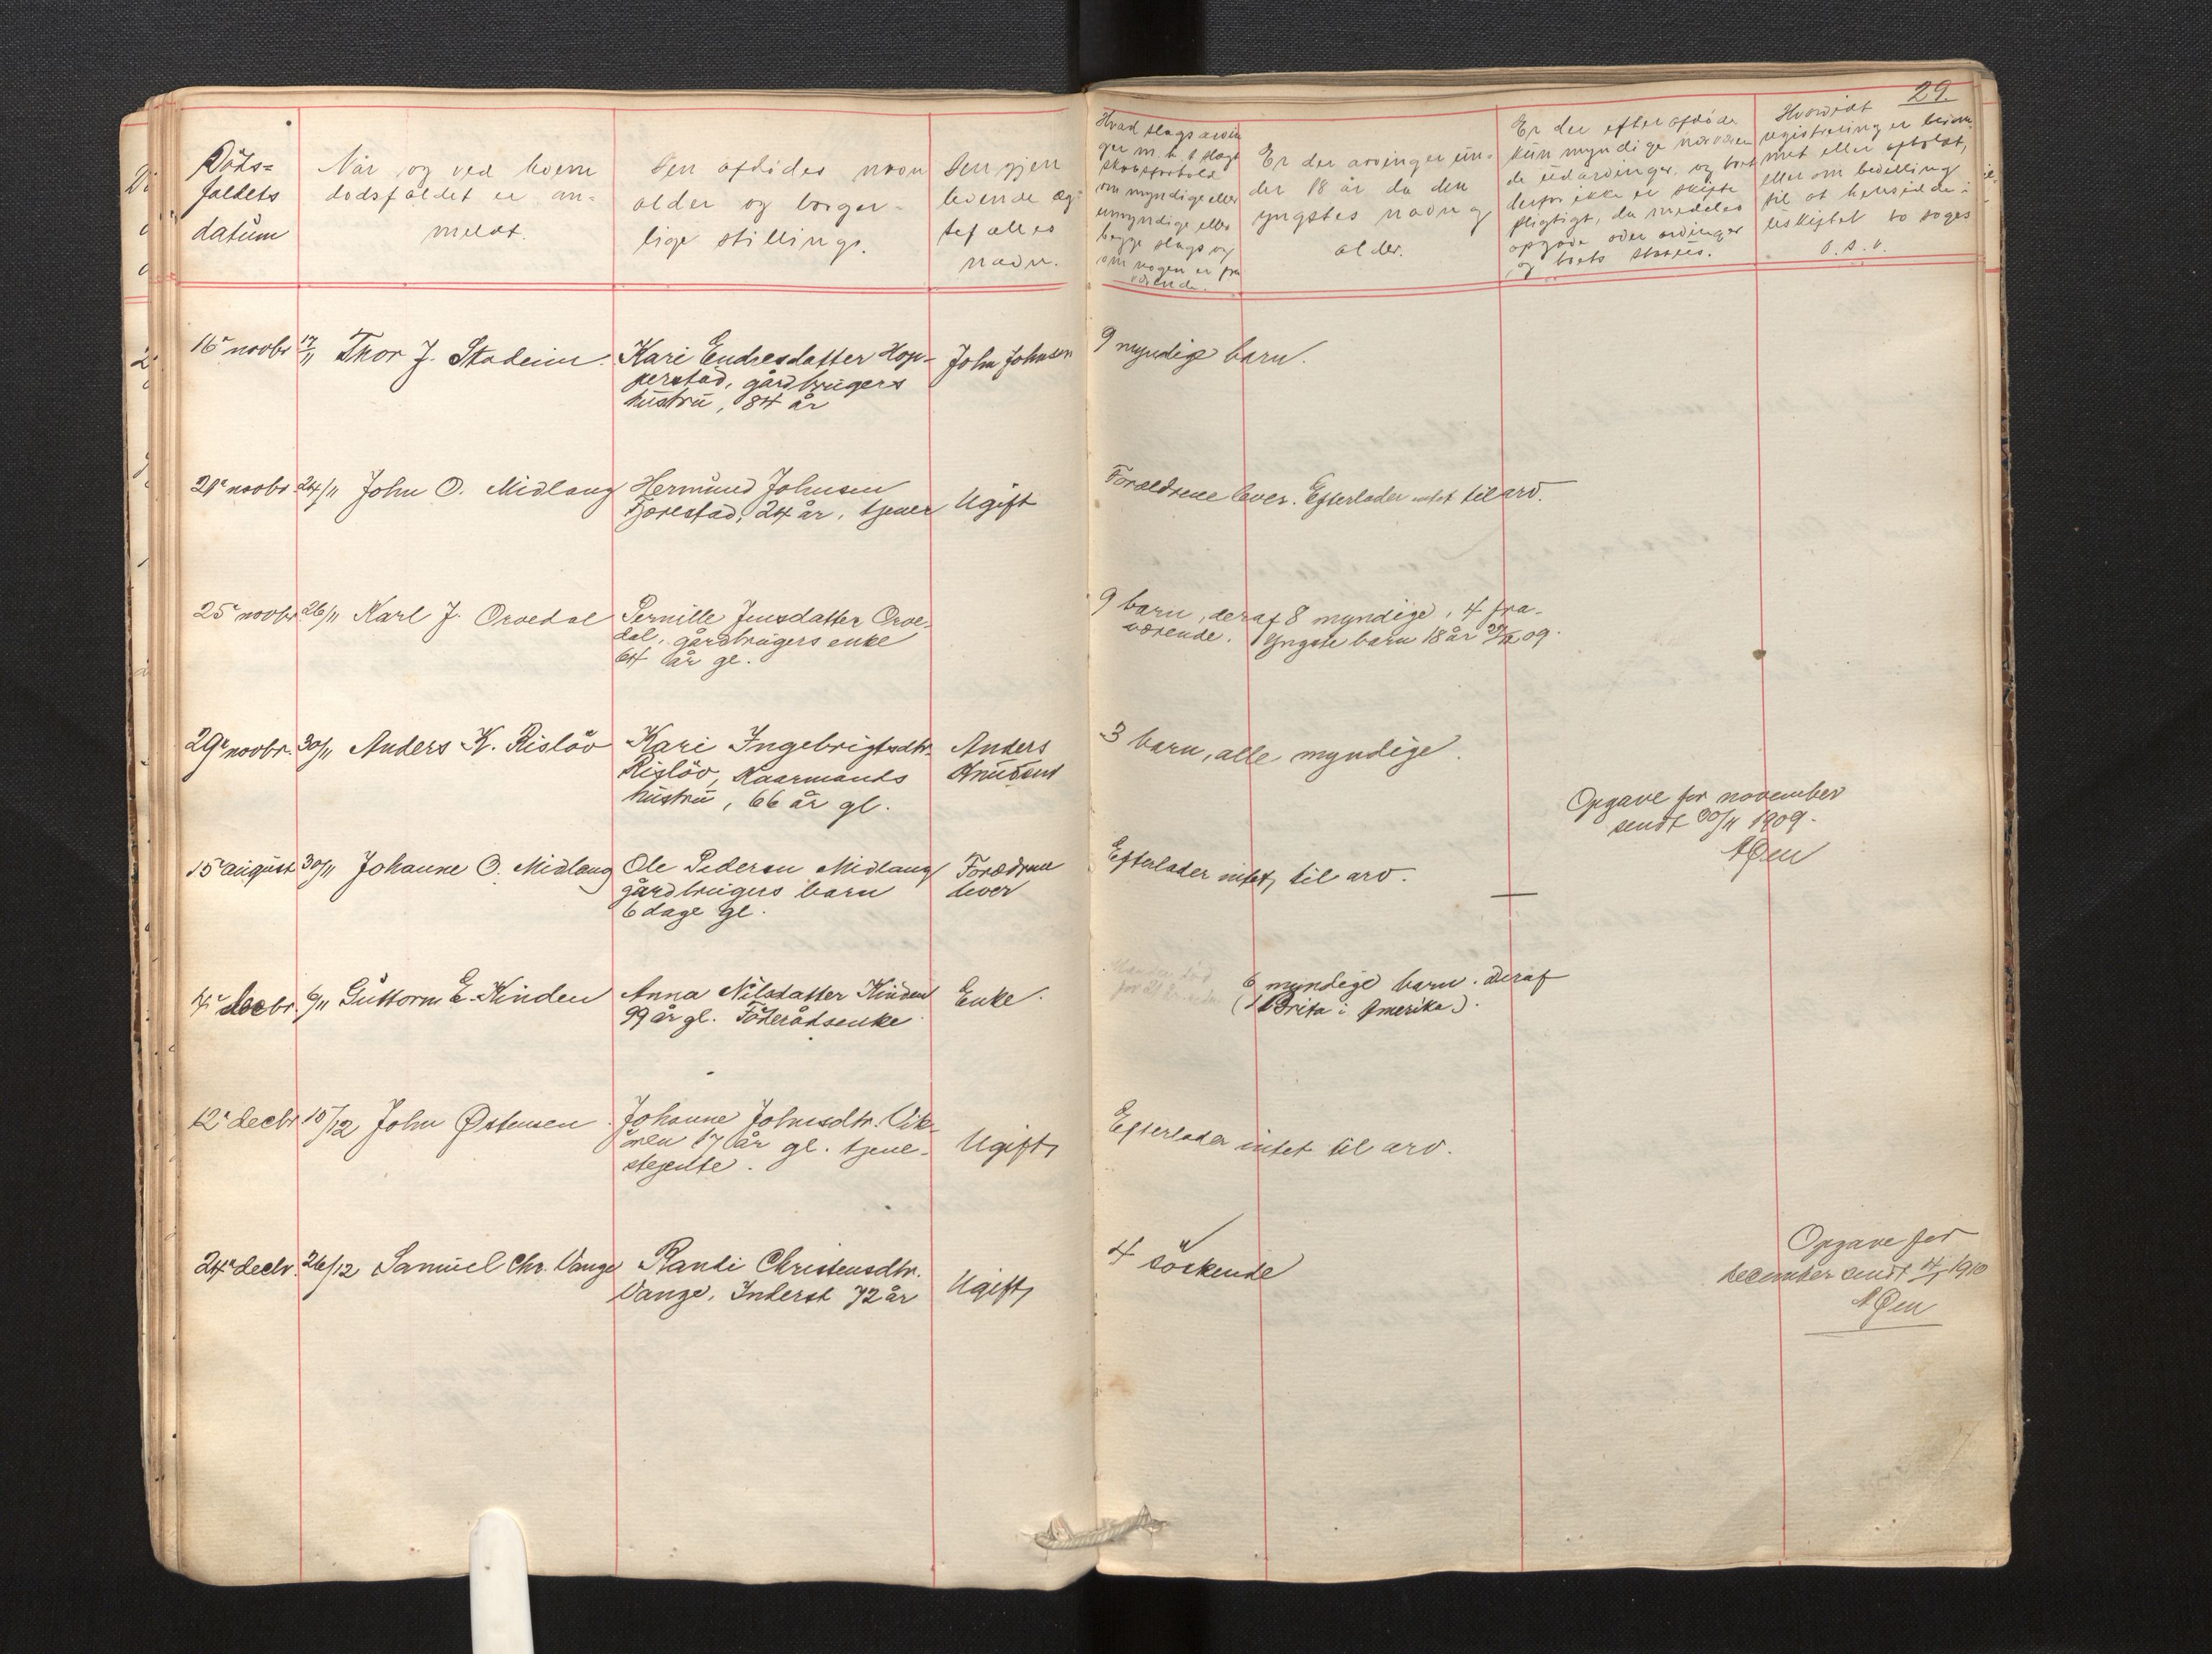 29.
Döds-
faldets
datum
Når og ved hvem
dödsfaldet er an-
meldt.
Den afdödes navn
alder og borger-
lige stilling.
Den gjen
levende æg-
tefælles
navn.
Hvad slags arvin
ger m. h. t slagt
skabsforhold
om myndige eller
umyndige eller
begge slags og
om nogen er fra
værende.
Er der arvinger un-
der 18 år da den
yngstes navn og
alder.
Er der efter afdöde
kun myndige nærværen
de udarvinger, og boet
derfor ikke er skifte
pligtigt, da meddeles
opgave over arvinger
og boets status.
Hvorvidt
registrering er beram-
met eller afholdt,
eller om bevilling
til at hensidde i
uskiftet bo söges
o. s. v.
16' novbr 17/11 Thor J. Stadeim. Kari Endresdatter Hop-
perstad, gårdbrugers
hustru, 84 år
John Johnsen
9 myndige barn.
21' novbr 24/11 John O. Midlang Hermund Johnsen
24 år, tjener
Ugift
Forældrene lever. Efterlader intet til arv.
25' novbr 26/11 Karl J. Orvedal Pernille Jensdatter Orve-
dal, gårdbrugers enke
64 år gl.
9 barn, deraf 8 myndige, 4 fra-
værende. Yngste barn 18 år 09.
29' novbr. 30/11 Anders K. Rislöv Kari Ingebrigtsdtr.
Rislöv, Kaarmands
hustru, 66 år gl.
Anders
Knutsen
3 barn, alle myndige.
Opgave for november
sendt 30/11 1909.
NØen
15' august 30/11 Johanne O. Midlang Ole Pedersen Midlang
gårdbrugers barn
6 dage gl.
Forældrene
lever
Efterlader intet til arv.
4' decbr. 6/11 Guttorm E. Hinden Anna Nilsdatter Hinden
99 år gl. Föderådsenke
Enke.
6 myndige barn. Deraf
(1 Brita i Amerika.)
12' decbr 15/12 John Østensen. Johanne Johnsdtr. Vik-
ören 17 år gl. tjene-
stejente.
Ugift
Efterlader intet til arv.
24' decbr. 26/12 Samuel Chr. Vange Randi Christensdtr.
Vange, Inderst 72 år
Ugift
4 söskende
Opgave for
december sendt 4/1 1910
NØen